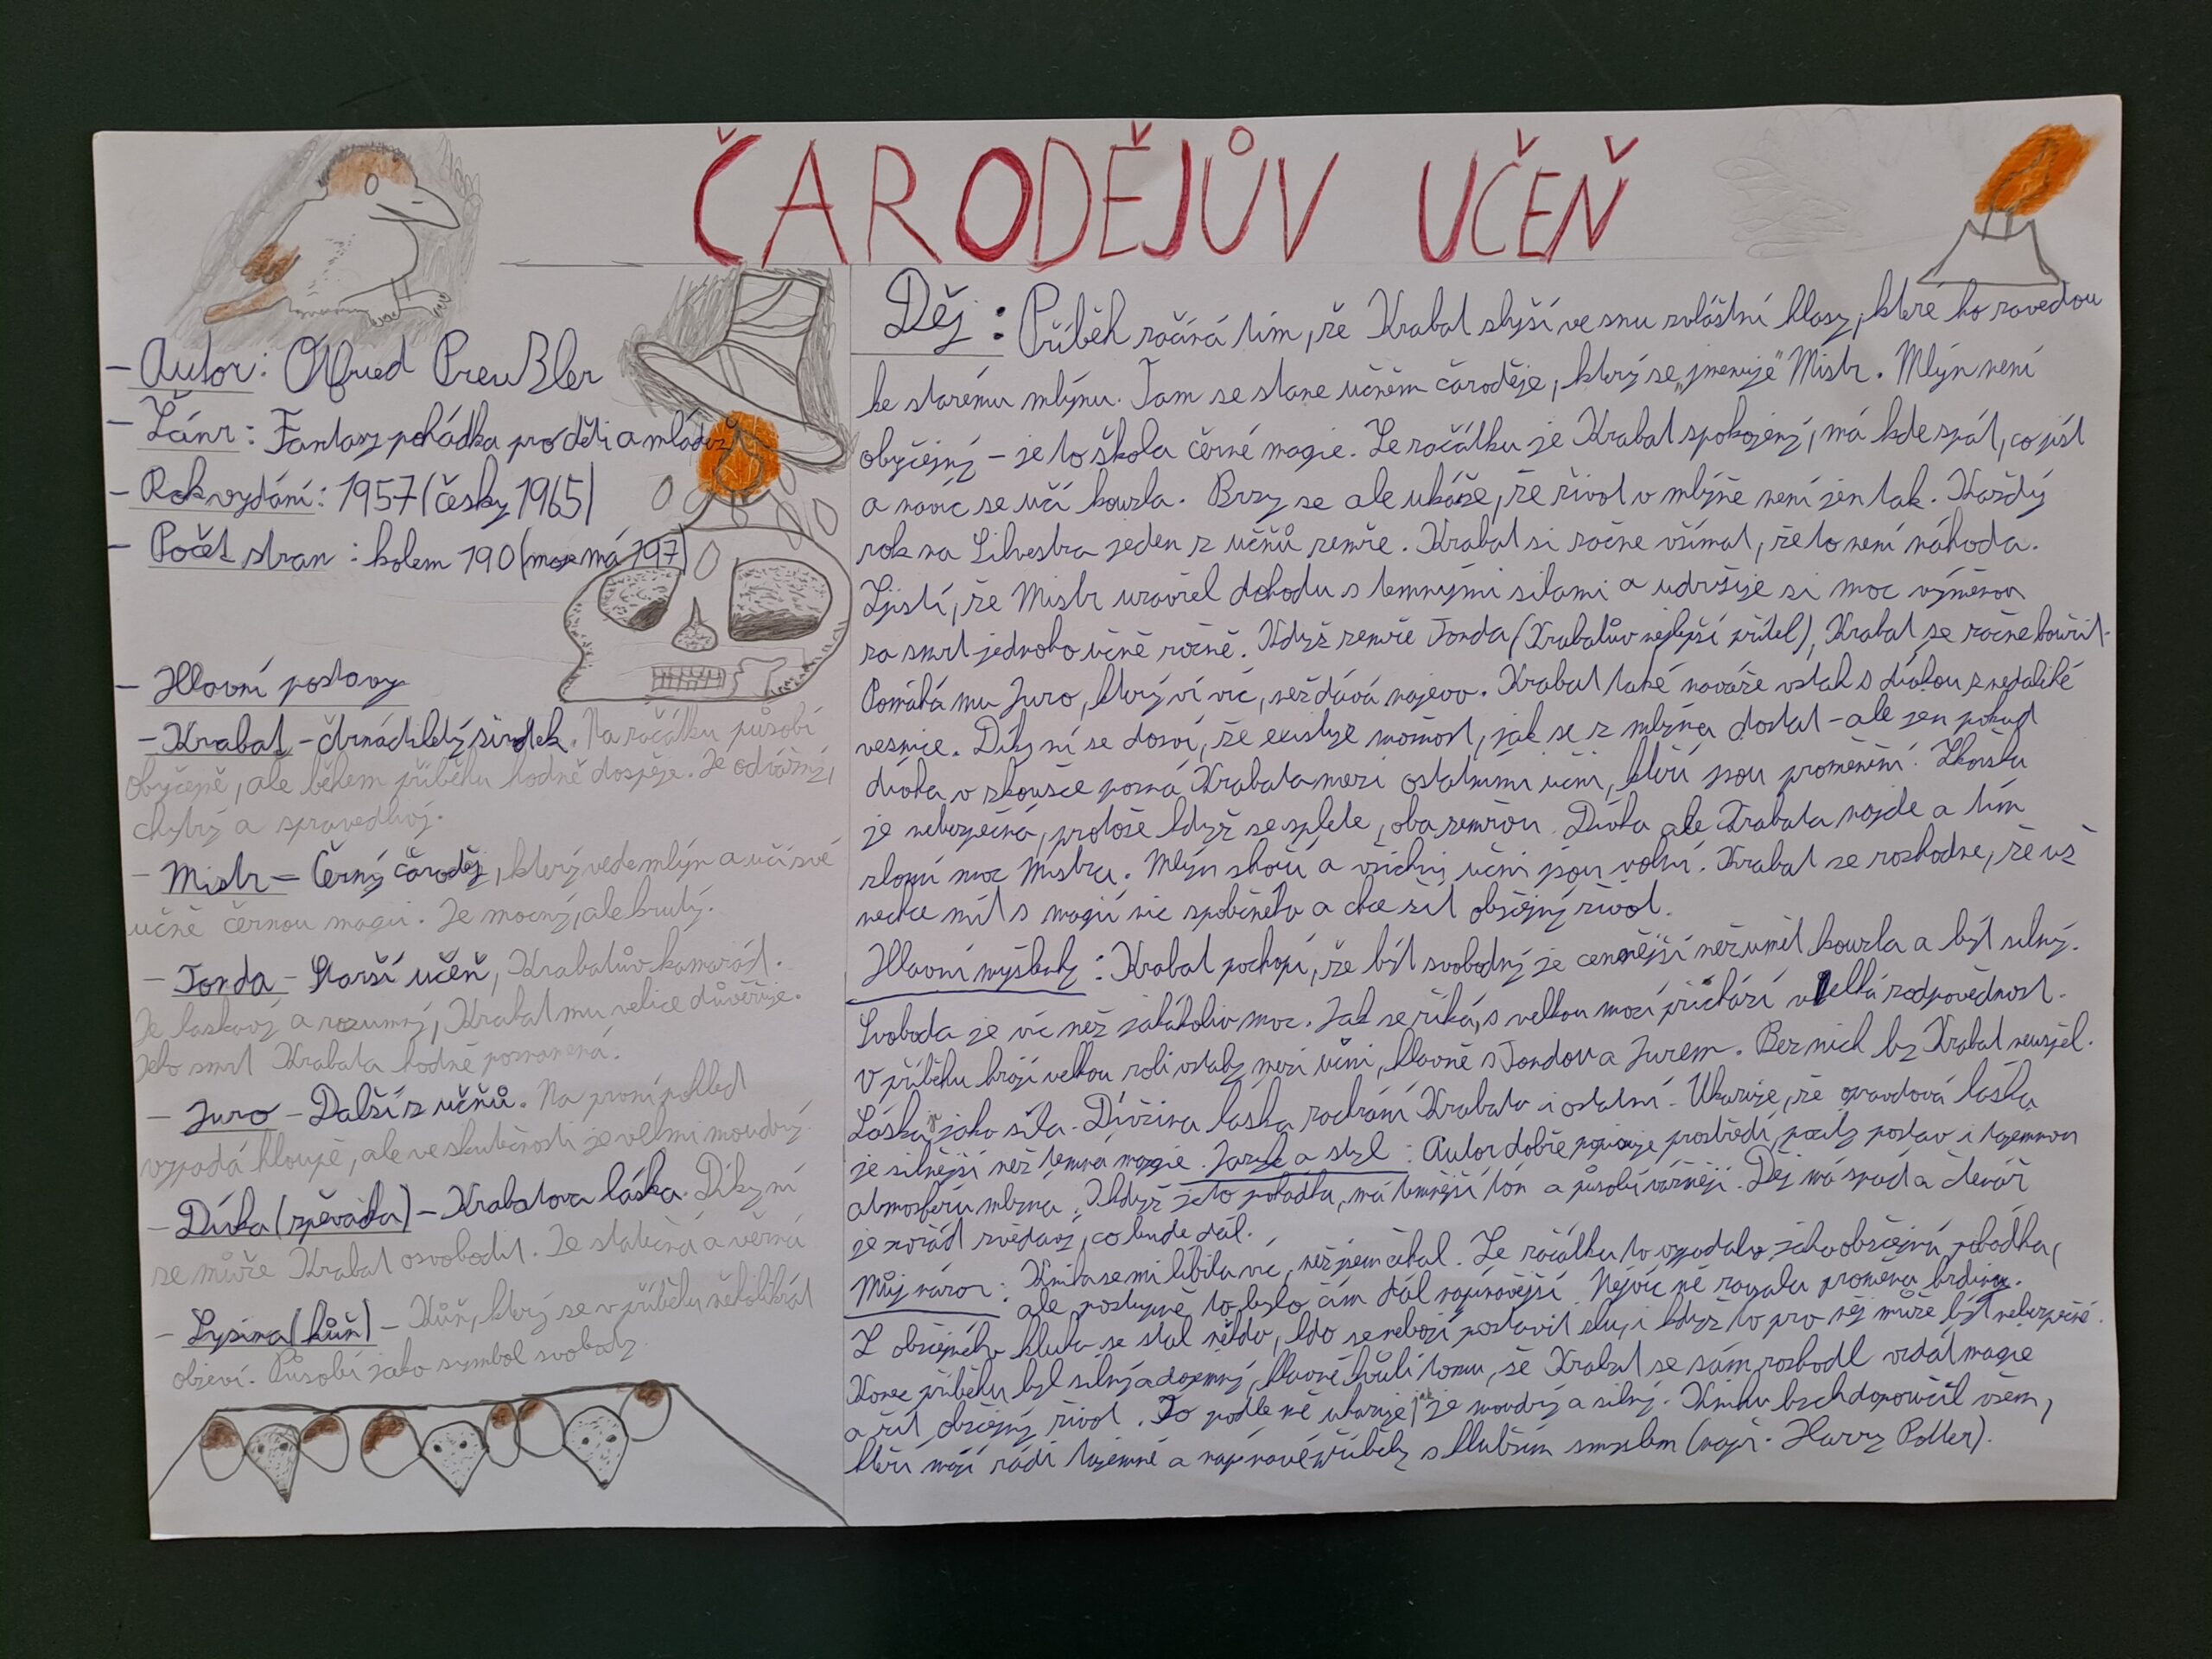 ČARODĚJŮV UČEŇ
- Autor: Otfried Preußler
- Žánr: Fantasy pohádka pro děti a mládež
- Rok vydání: 1957 (česky 1965)
- Počet stran: kolem 190 (moje má 197)
- Hlavní postavy
- Krabat - čtrnáctiletý sirotek. Na začátku působí
obyčejně, ale během příběhu hodně dospěje. Je odvážný,
chytrý a spravedlivý.
- Mistr - Černý čaroděj, který vede mlýn a učí své
učně černou magii. Je mocný, ale krutý.
- Tonda - Starší učeň, Krabatův kamarád.
Je laskavý a rozumný, Krabat mu velice důvěřuje.
Jeho smrt Krabata hodně poznamená.
- Juro - Další z učňů. Na první pohled
vypadá hloupě, ale ve skutečnosti je velmi moudrý.
- Dívka (zpěvačka) - Krabatova láska. Díky ní
se může Krabat osvobodit. Je statečná a věrná
- Lysina (kůň) - Kůň, který se v příběhu několikrát
objeví. Působí jako symbol svobody.
Děj: Příběh začíná tím, že Krabat slyší ve snu zvláštní hlasy, které ho zavedou
ke starému mlýnu. Tam se stane učněm čaroděje, který se „jmenuje" Mistr. Mlýn není
obyčejný - je to škola černé magie. Ze začátku je Krabat spokojený, má kde spát, co jíst
a navíc se učí kouzla. Brzy se ale ukáže, že život v mlýně není jen tak. Každý
rok na Silvestra jeden z učňů zemře. Krabat si začne všímat, že to není náhoda.
Zjistí, že Mistr uzavřel dohodu s temnými silami a udržuje si moc výměnou
za smrt jednoho učně ročně. Když zemře Tonda (Krabatův nejlepší přítel), Krabat se začne bouřit.
Pomáhá mu Juro, který ví víc, než dává najevo. Krabat také naváže vztah s dívkou z nedaleké
vesnice. Díky ní se dozví, že existuje možnost, jak se z mlýna dostat - ale jen pokud
dívka v zkoušce pozná Krabata mezi ostatními učni, kteří jsou proměnění. Zkouška
je nebezpečná, protože když se splete, oba zemřou. Dívka ale Krabata najde a tím
zlomí moc Mistra. Mlýn shoří a všichni učni jsou volní. Krabat se rozhodne, že už
nechce mít s magií nic společného a chce žít obyčejný život.
Hlavní myšlenky: Krabat pochopí, že být svobodný je cennější než umět kouzla a být silný.
Svoboda je víc než jakákoliv moc. Jak se říká, s velkou mocí přichází velká zodpovědnost.
V příběhu hrají velkou roli vztahy mezi učni, hlavně s Tondou a Jurem. Bez nich by Krabat neuspěl.
Láska je jako síla. Dívčina láska zachrání Krabata i ostatní. Ukazuje, že opravdová láska
je silnější než temná magie. Jazyk a styl: Autor dobře popisuje prostředí, pocity postav i tajemnou
atmosféru mlýna. I když je to pohádka, má temnější tón a působí vážněji. Děj má spád a čtenář
je pořád zvědavý, co bude dál.
Můj názor: Kniha se mi líbila víc, než jsem čekal. Ze začátku to vypadalo jako obyčejná pohádka,
ale postupně to bylo čím dál napínavější. Nejvíc mě zaujala proměna hrdiny.
Z obyčejného kluka se stal někdo, kdo se nebojí postavit zlu, i když to pro něj může být nebezpečné.
Konec příběhu byl silný a dojemný, hlavně kvůli tomu, že Krabat se sám rozhodl vzdát magie
a žít obyčejný život. To podle mě ukazuje, jak je moudrý a silný. Knihu bych doporučil všem,
kteří mají rádi tajemné a napínavé příběhy s hlubším smyslem (např. Harry Potter).